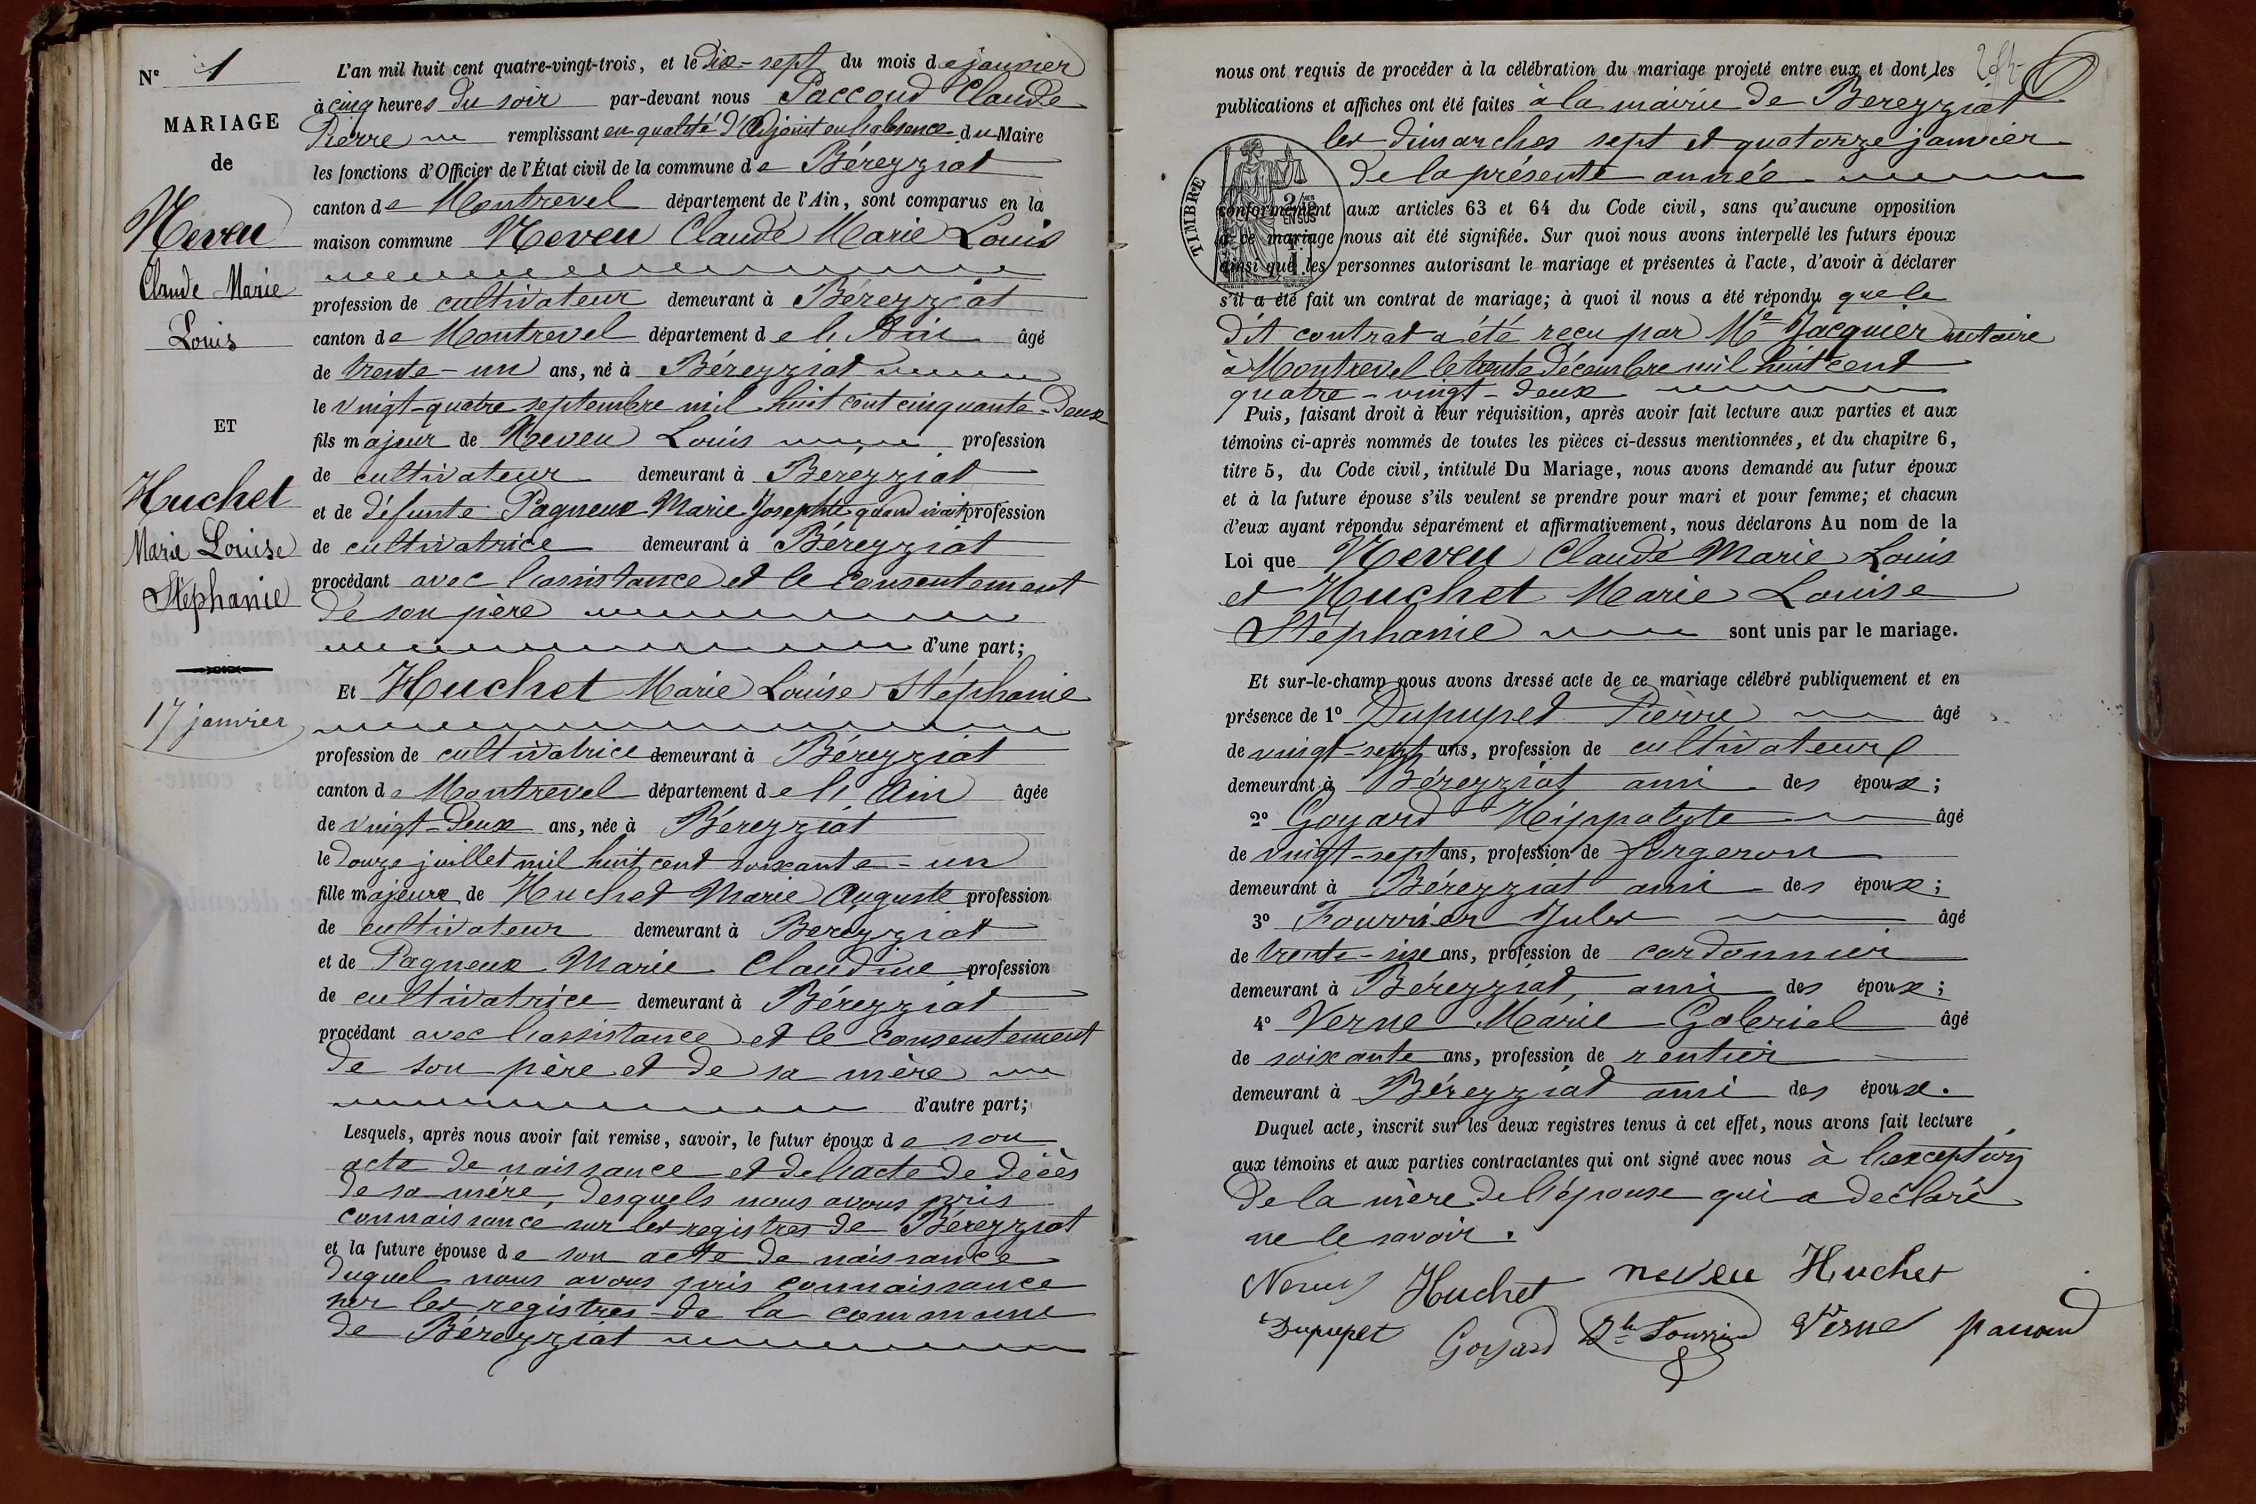 N° 1
MARIAGE
de
Neveu
Claude Marie
Louis
ET
Huchet
Marie Louise
Stéphanie
17 janvier
L'an mil huit cent quatre-vingt-trois, et le dix-sept du mois de janvier
à cinq heures du soir par-devant nous Paccoud Claude
Pierre remplissant en qualité d'Adjoint en l'absence du Maire
les fonctions d'Officier de l'État civil de la commune de Béreyziat
canton de Montrevel département de l'Ain, sont comparus en la
maison commune Neveu Claude Marie Louis
profession de cultivateur demeurant à Béreyziat
canton de Montrevel département de l'Ain âgé
de trente-un ans, né à Béreyziat
le vingt-quatre septembre mil huit cent cinquante-deux
fils majeur de Neveu Louis profession
de cultivateur demeurant à Bereyziat
et de défunte Pagneux Marie Josephte quand vivait profession
de cultivatrice demeurant à Béreyziat
procédant avec l'assistance et le consentement
de son père
d'une part;
Et Huchet Marie Louise Stéphanie
profession de cultivatrice demeurant à Béreyziat
canton de Montrevel département de l'Ain âgée
de vingt-deux ans, née à Béreyziat
le douze juillet mil huit cent soixante-un
fille majeure de Huchet Marie Auguste profession
de cultivateur demeurant à Bereyziat
et de Pagneux Marie Claudine profession
de cultivatrice demeurant à Béreyziat
procédant avec l'assistance et le consentement
de son père et de sa mère
d'autre part;
Lesquels, après nous avoir fait remise, savoir, le futur époux de son
acte de naissance et de l'acte de décès
de sa mère, desquels nous avons pris
connaissance sur les registres de Béreyziat
et la future épouse de son acte de naissance
duquel nous avons pris connaissance
sur les registres de la commune
de Béreyziat
nous ont requis de procéder à la célébration du mariage projeté entre eux et dont les
publications et affiches ont été faites à la mairie de Bereyziat
les dimanches sept et quatorze janvier
de la présente année
TIMBRE
2/10es
EN SUS
conformément aux articles 63 et 64 du Code civil, sans qu'aucune opposition
à ce mariage nous ait été signifiée. Sur quoi nous avons interpellé les futurs époux
ainsi que les personnes autorisant le mariage et présentes à l'acte, d'avoir à déclarer
s'il a été fait un contrat de mariage; à quoi il nous a été répondu que le
dit contrat a été reçu par Me Jacquier notaire
à Montrevel le trente décembre mil huit cent
quatre-vingt-deux
Puis, faisant droit à leur réquisition, après avoir fait lecture aux parties et aux
témoins ci-après nommés de toutes les pièces ci-dessus mentionnées, et du chapitre 6,
titre 5, du Code civil, intitulé Du Mariage, nous avons demandé au futur époux
et à la future épouse s'ils veulent se prendre pour mari et pour femme; et chacun
d'eux ayant répondu séparément et affirmativement, nous déclarons Au nom de la
Loi que Neveu Claude Marie Louis
et Huchet Marie Louise
Stéphanie sont unis par le mariage.
Et sur-le-champ nous avons dressé acte de ce mariage célébré publiquement et en
présence de 1° Dupupet Pierre âgé
de vingt-sept ans, profession de cultivateur
demeurant à Béreyziat ami des époux;
2° Goyard Hippolyte âgé
de vingt-sept ans, profession de forgeron
demeurant à Béreyziat ami des époux;
3° Fourrier Jules âgé
de trente-six ans, profession de cordonnier
demeurant à Béreyziat, ami des époux;
4° Verne Marie Gabriel âgé
de soixante ans, profession de rentier
demeurant à Béreyziat ami des époux.
Duquel acte, inscrit sur les deux registres tenus à cet effet, nous avons fait lecture
aux témoins et aux parties contractantes qui ont signé avec nous à l'exception
de la mère de l'épouse qui a déclaré
ne le savoir.
Neveu Huchet neveu Huchet
Dupupet Goyard Fourrier Verne paccoud